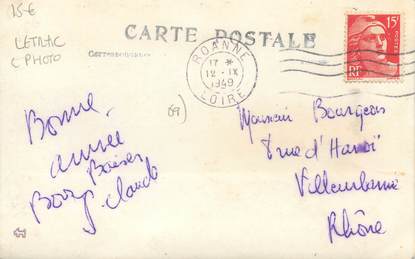 15 €
LETRAC
C PHOTO
CARTE POSTALE
Correspondance
ROANNE
17 *
12 · IX
1949
LOIRE
15F
RF
(69)
Bonne
année
Baiser
Claude
Monsieur Bourgeois
rue d'Hanoï
Villeurbanne
Rhône